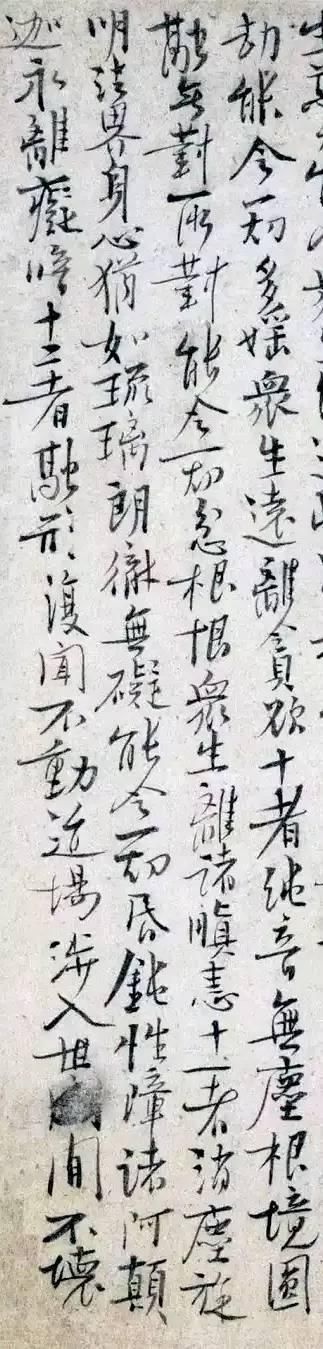 劫能令一切多婬衆生遠離貪欲十者純音無塵根境圓
融无對所對能令一切忿根恨衆生離諸瞋恚十一者消塵旋
明法界身心猶如琉璃朗徹無礙能令一切昏鈍性障諸阿顛
迦永離癡暗十二者融形復聞不動道場涉入世間不壞